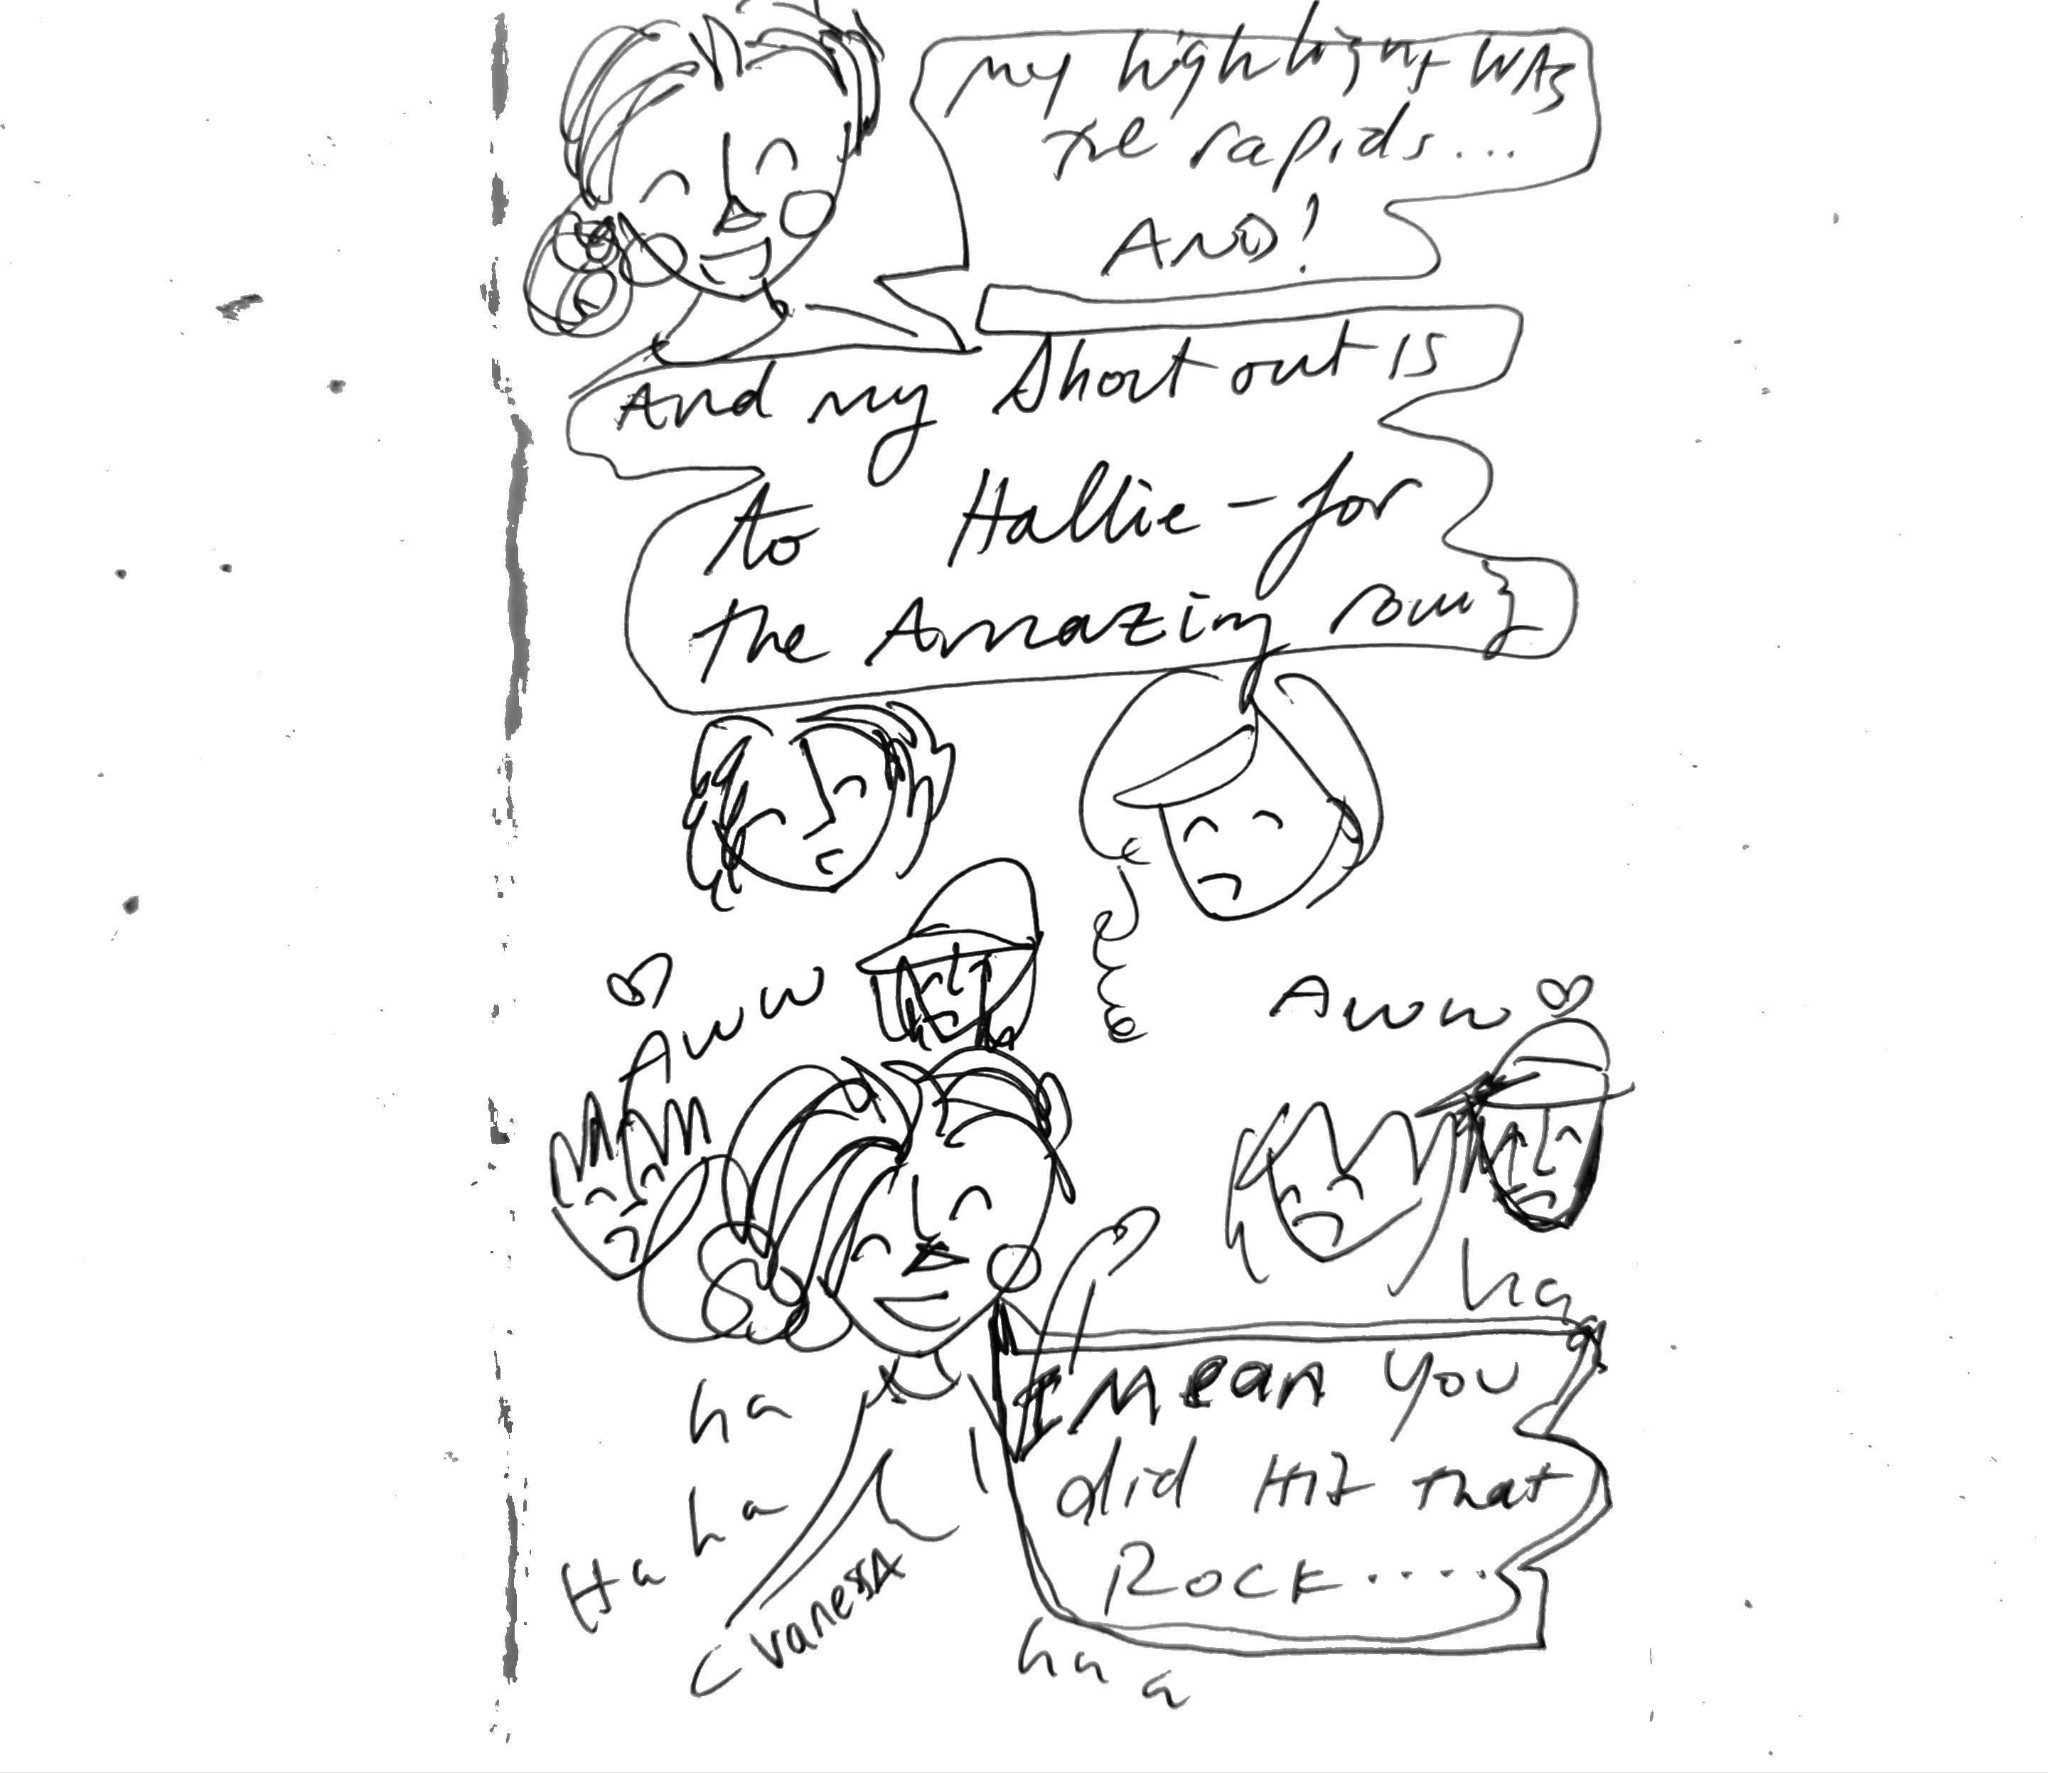 my highlight WAS
the rapids...
AND!
And my Shout out is
to Hallie - for
the Amazing rowing
Aww
Aww
ha
I Mean you
did Hit that
Rock.....
ha
ha
Ha
Vanessa
ha a